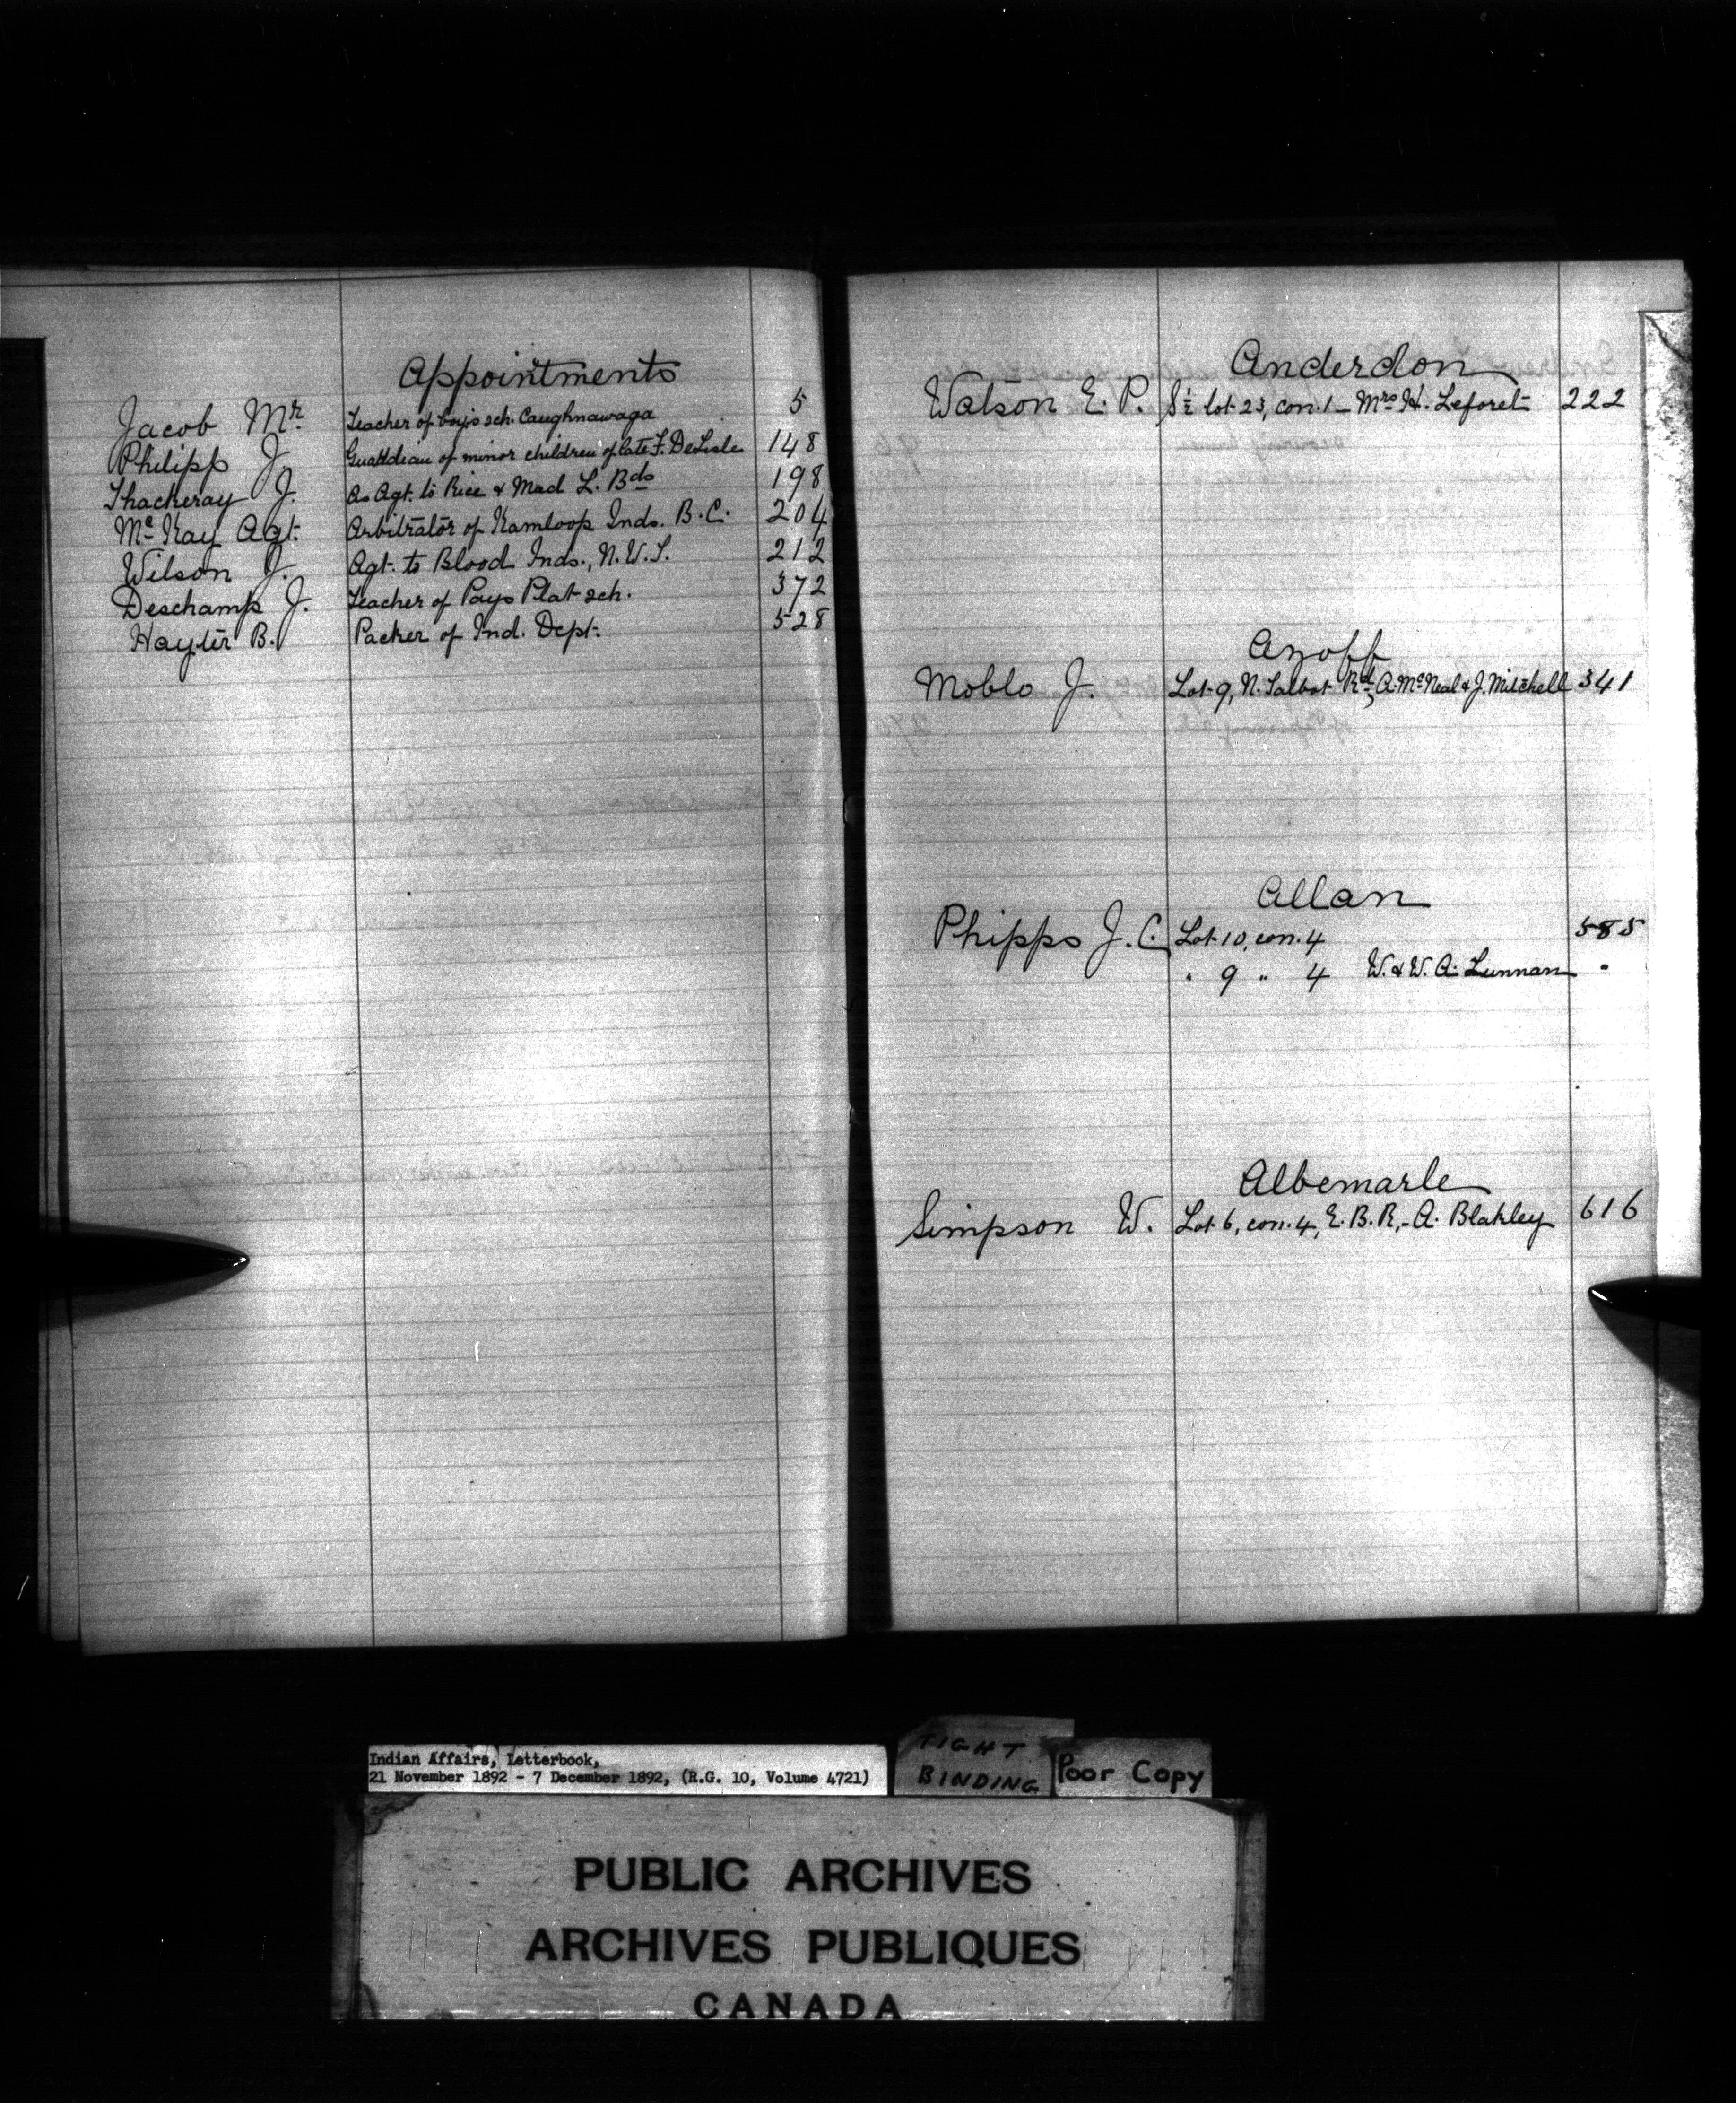 Appointments
Jacob Mr Teacher of boys sch. Caughnawaga 5
Philipp J. Guatdian of minor children of late F. DeLisle 148
Thackeray J. As Agt. to Rice & Mud L. Bds 198
Mc Kay Agt. Arbitrator of Kamloop Inds. B.C. 204
Wilson J. Agt. to Blood Inds., N.W.T. 212
Deschamp J. Teacher of Pays Plat sch. 372
Hayter B. Packer of Ind. Dept. 528
Anderdon
Watson E. P. S½ lot 23, con. 1 - Mrs H. Leforet 222
Azoff
Moblo J. Lot 9, N. Talbot Rd, A. McNeal & J. Mitchell 341
Allan
Phipps J. C. Lot 10, con. 4 585
" 9 " 4 W. & W. A. Lunnan "
Albemarle
Simpson W. Lot 6, con. 4, E. B. R, - A. Blakley 616
Indian Affairs, Letterbook,
21 November 1892 - 7 December 1892, (R.G. 10, Volume 4721)
TIGHT
BINDING
Poor Copy
PUBLIC ARCHIVES
ARCHIVES PUBLIQUES
CANADA